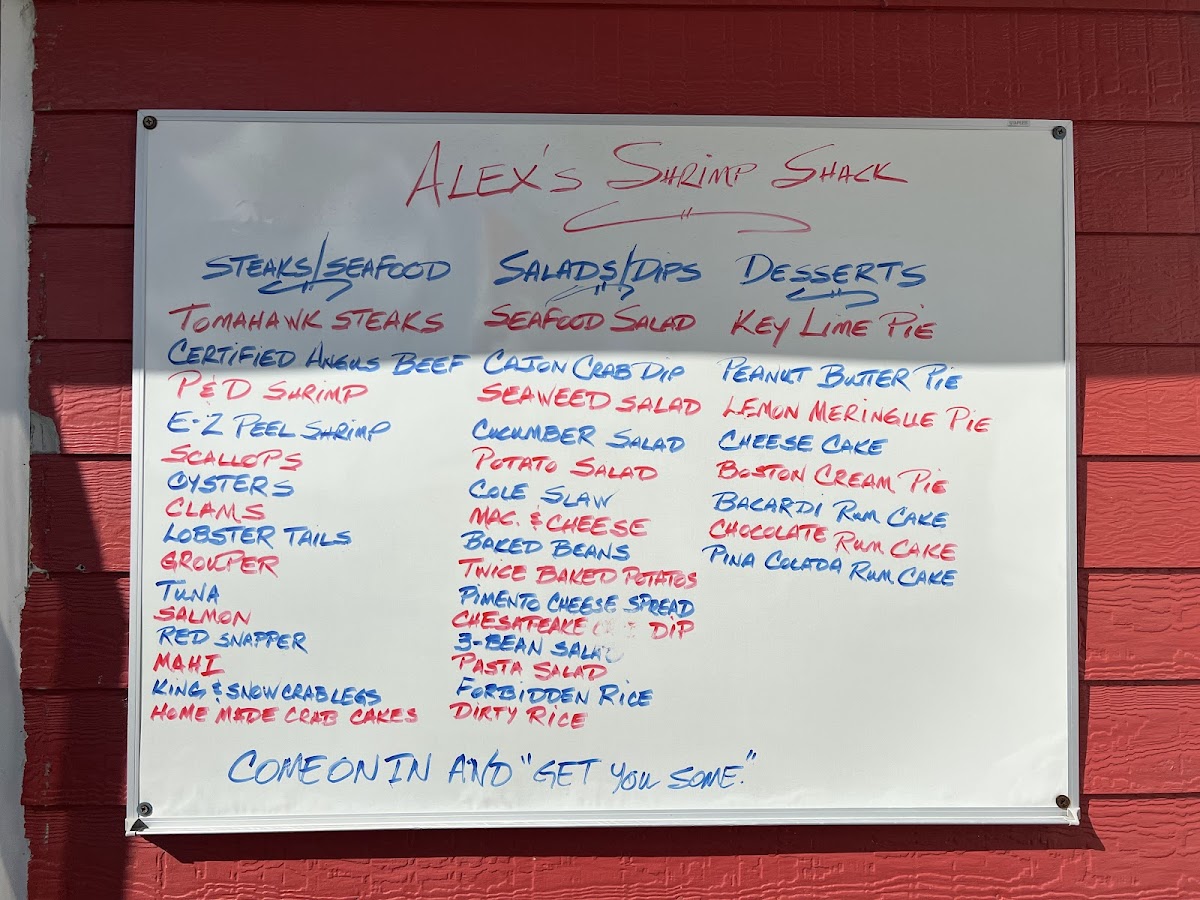 ALEX'S SHRIMP SHACK
STEAKS/SEAFOOD
TOMAHAWK STEAKS
CERTIFIED ANGUS BEEF
P&D SHRIMP
E-Z PEEL SHRIMP
SCALLOPS
OYSTERS
CLAMS
LOBSTER TAILS
GROUPER
TUNA
SALMON
RED SNAPPER
MAHI
KING & SNOW CRAB LEGS
HOME MADE CRAB CAKES
SALADS/DIPS
SEAFOOD SALAD
CAJON CRAB DIP
SEAWEED SALAD
CUCUMBER SALAD
POTATO SALAD
COLE SLAW
MAC. & CHEESE
BAKED BEANS
TWICE BAKED POTATOS
PIMENTO CHEESE SPREAD
CHESAPEAKE DIP
3-BEAN SALAD
PASTA SALAD
FORBIDDEN RICE
DIRTY RICE
DESSERTS
KEY LIME PIE
PEANUT BUTTER PIE
LEMON MERINGUE PIE
CHEESE CAKE
BOSTON CREAM PIE
BACARDI RUM CAKE
CHOCOLATE RUM CAKE
PINA COLADA RUM CAKE
COME ON IN AND "GET YOU SOME."